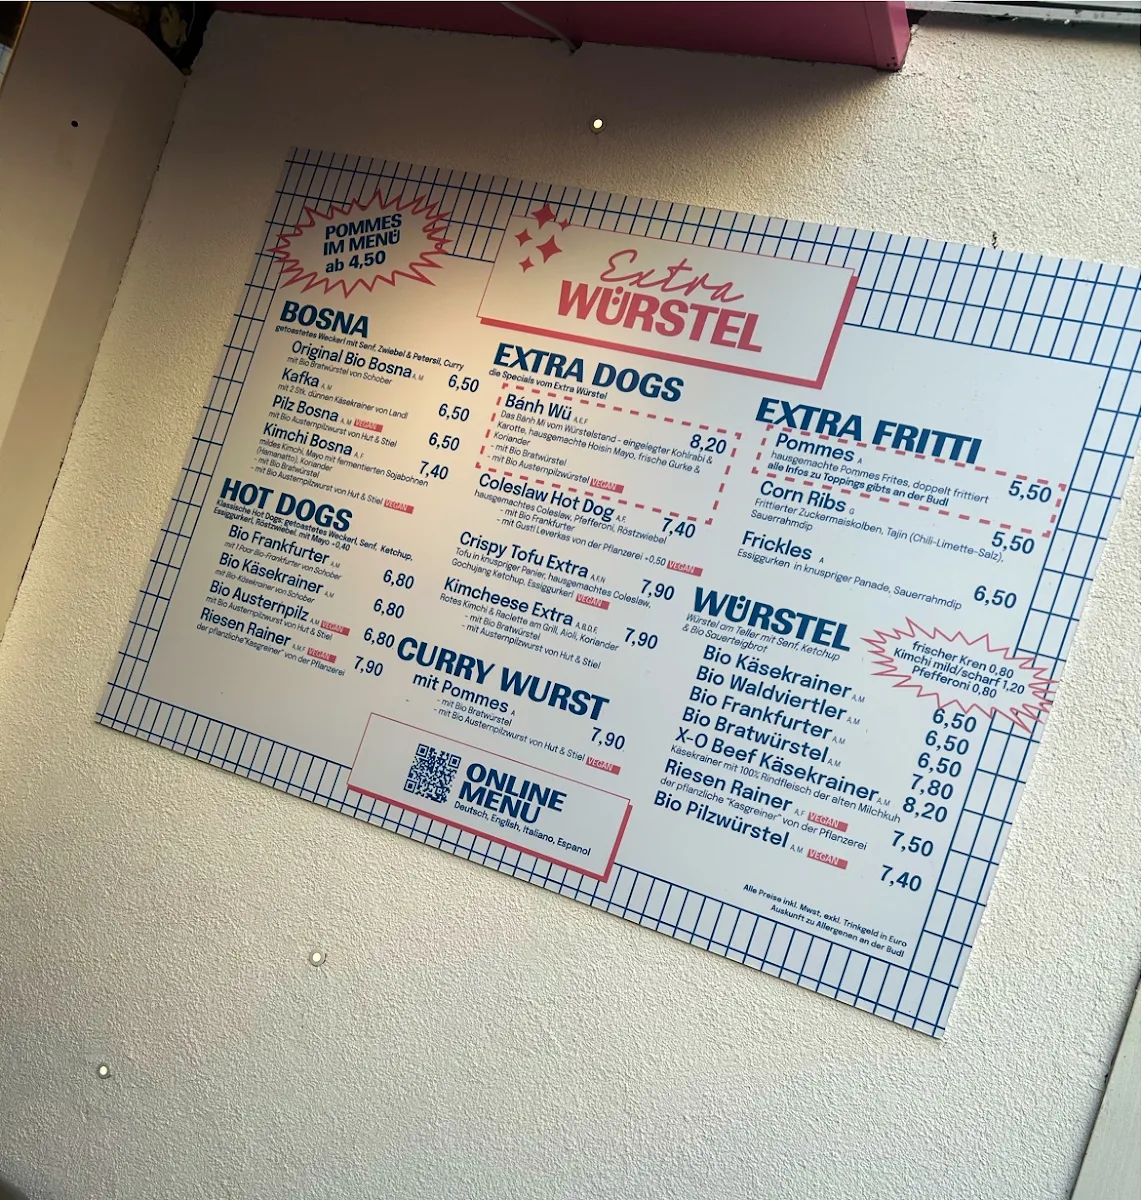 POMMES
IM MENÜ
ab 4,50
Extra
WÜRSTEL
BOSNA
getoastetes Weckerl mit Senf, Zwiebel & Petersil, Curry
Original Bio Bosna A, M 6,50
mit Bio Bratwürstel von Schober
Kafka A, M 6,50
mit 2 Stk. dünnen Käsekrainer von Landl
Pilz Bosna A, M VEGAN 6,50
mit Bio Austernpilzwurst von Hut & Stiel
Kimchi Bosna A, F 7,40
mildes Kimchi, Mayo mit fermentierten Sojabohnen
(Hamanatto), Koriander
- mit Bio Bratwürstel
- mit Bio Austernpilzwurst von Hut & Stiel VEGAN
HOT DOGS
Klassische Hot Dogs: getoastetes Weckerl, Senf, Ketchup,
Essiggurkerl, Röstzwiebel, mit Mayo +0,40
Bio Frankfurter A, M 6,80
mit 1 Paar Bio-Frankfurter von Schober
Bio Käsekrainer A, M 6,80
mit Bio-Käsekrainer von Schober
Bio Austernpilz A, M VEGAN 6,80
mit Bio Austernpilzwurst von Hut & Stiel
Riesen Rainer A, M, F VEGAN 7,90
der pflanzliche "Kasgreiner" von der Pflanzerei
EXTRA DOGS
die Specials vom Extra Würstel
Bánh Wü A, E, F 8,20
Das Bánh Mì vom Würstelstand - eingelegter Kohlrabi &
Karotte, hausgemachte Hoisin Mayo, frische Gurke &
Koriander
- mit Bio Bratwürstel
- mit Bio Austernpilzwürstel VEGAN
Coleslaw Hot Dog A, F 7,40
hausgemachtes Coleslaw, Pfefferoni, Röstzwiebel
- mit Bio Frankfurter
- mit Gusti Leverkas von der Pflanzerei +0,50 VEGAN
Crispy Tofu Extra A, F, N 7,90
Tofu in knuspriger Panier, hausgemachtes Coleslaw,
Gochujang Ketchup, Essiggurkerl VEGAN
Kimcheese Extra A, B, D, F, 7,90
Rotes Kimchi & Raclette am Grill, Aioli, Koriander
- mit Bio Bratwürstel
- mit Austernpilzwurst von Hut & Stiel
CURRY WURST
mit Pommes A 7,90
- mit Bio Bratwürstel
- mit Bio Austernpilzwurst von Hut & Stiel VEGAN
ONLINE
MENU
Deutsch, English, Italiano, Espanol
EXTRA FRITTI
Pommes A 5,50
hausgemachte Pommes Frites, doppelt frittiert
alle Infos zu Toppings gibts an der Budl
Corn Ribs G 5,50
Frittierter Zuckermaiskolben, Tajin (Chili-Limette-Salz),
Sauerrahmdip
Frickles A 6,50
Essiggurken in knuspriger Panade, Sauerrahmdip
WÜRSTEL
Würstel am Teller mit Senf, Ketchup
& Bio Sauerteigbrot
frischer Kren 0,80
Kimchi mild/scharf 1,20
Pfefferoni 0,80
Bio Käsekrainer A, M 6,50
Bio Waldviertler A, M 6,50
Bio Frankfurter A, M 6,50
Bio Bratwürstel A, M 7,80
X-O Beef Käsekrainer A, M 8,20
Käsekrainer mit 100% Rindfleisch der alten Milchkuh
Riesen Rainer A, F VEGAN 7,50
der pflanzliche "Kasgreiner" von der Pflanzerei
Bio Pilzwürstel A, M VEGAN 7,40
Alle Preise inkl. Mwst, exkl. Trinkgeld in Euro
Auskunft zu Allergenen an der Budl